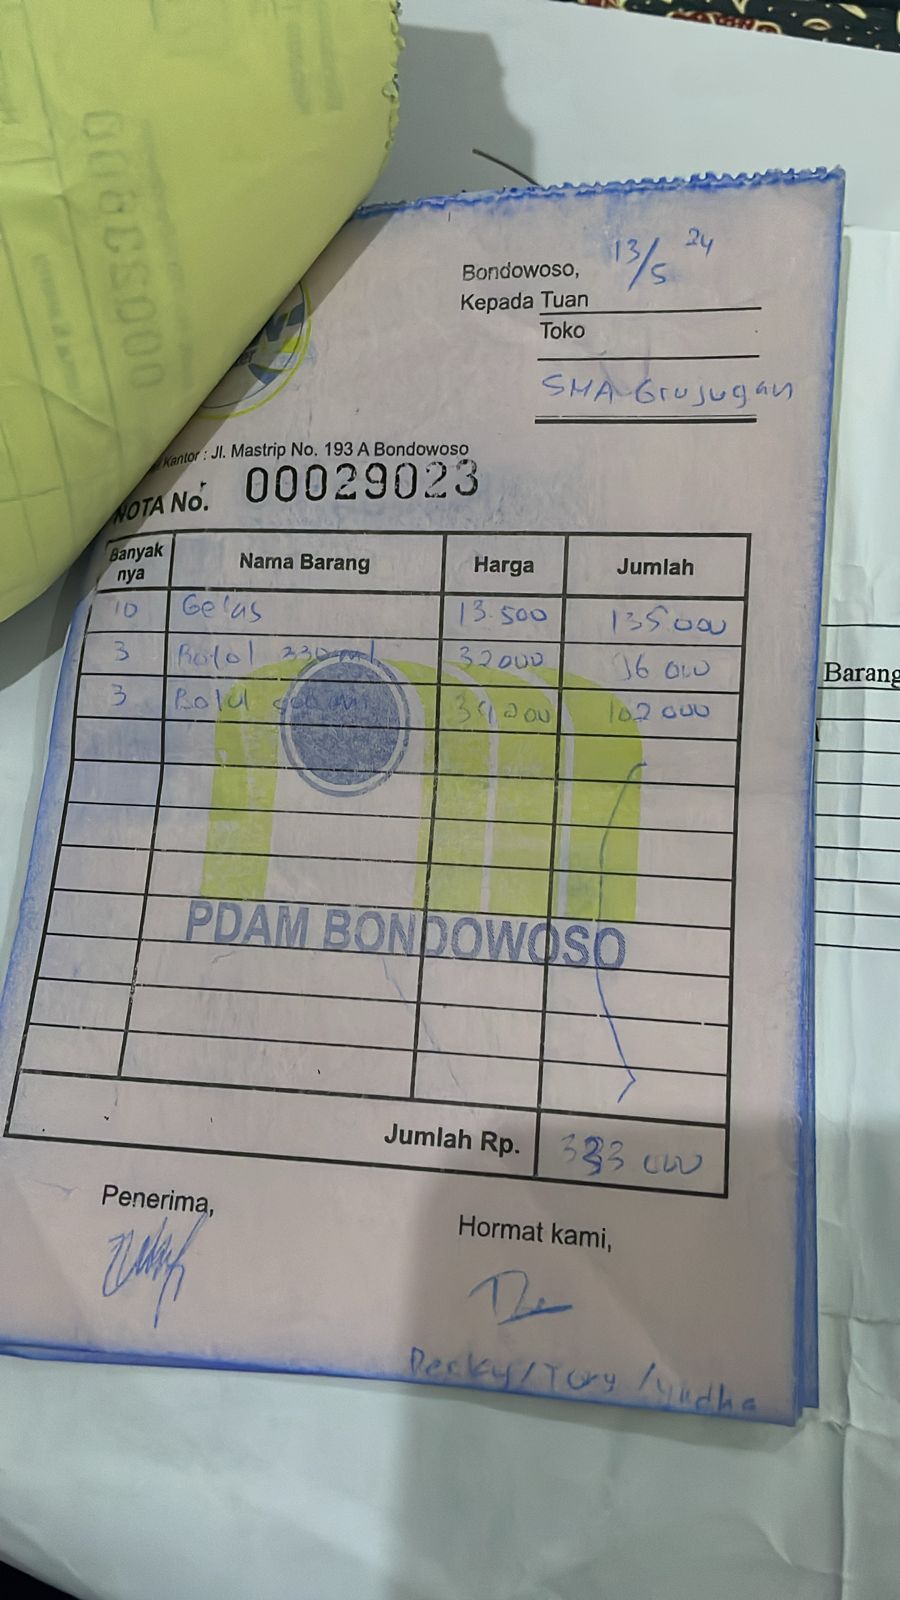 Bondowoso, 13/5 24
Kepada Tuan
Toko
SMA Grujugan
Kantor : Jl. Mastrip No. 193 A Bondowoso
NOTA No. 00029023
Banyak nya Nama Barang Harga Jumlah
10 Gelas 13.500 135000
3 Botol 330 ml 32000 96 000
3 Botol 34000 102 000
PDAM BONDOWOSO
Jumlah Rp. 333 000
Penerima,
Hormat kami,
/ Tory / yudha
Barang